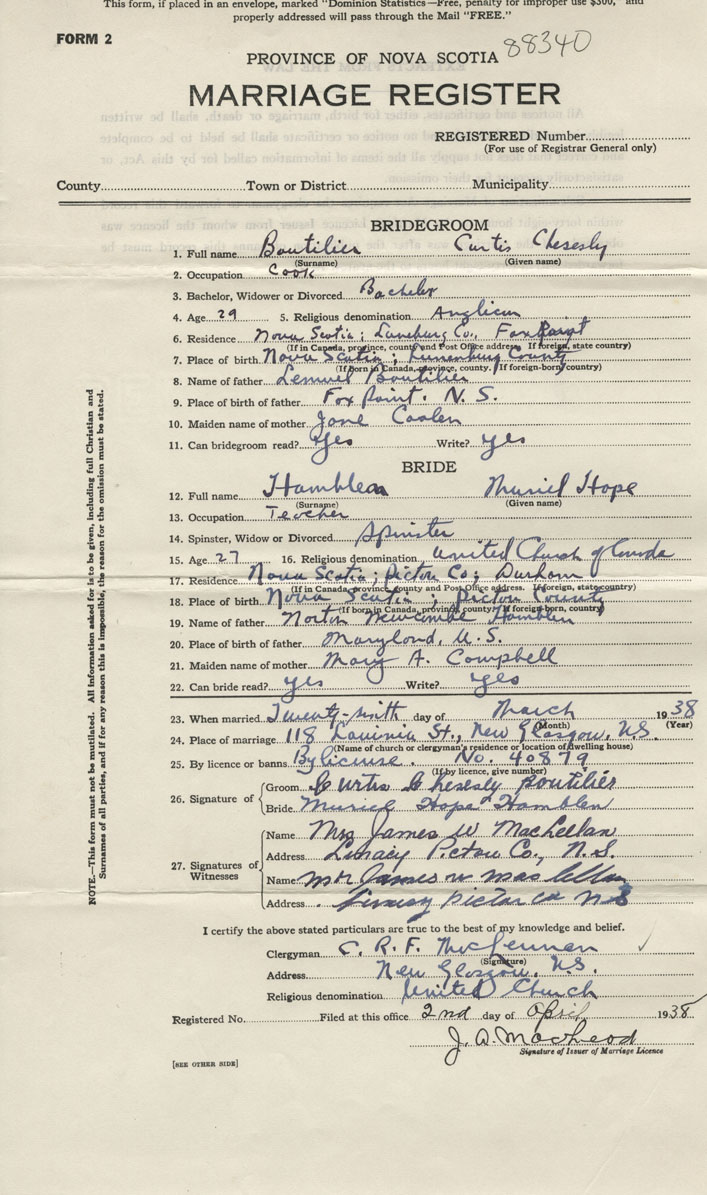 This form, if placed in an envelope, marked "Dominion Statistics—Free, penalty for improper use $300," and
properly addressed will pass through the Mail "FREE."
FORM 2
88340
PROVINCE OF NOVA SCOTIA
MARRIAGE REGISTER
REGISTERED Number
(For use of Registrar General only)
County Town or District Municipality
BRIDEGROOM
1. Full name Boutilier Curtis Chesesly
(Surname) (Given name)
2. Occupation Cook
3. Bachelor, Widower or Divorced Bachelor
4. Age 29 5. Religious denomination Anglican
6. Residence Nova Scotia; Lunenburg Co., Fox Point
(If in Canada, province, county and Post Office address. If foreign, state country)
7. Place of birth Nova Scotia; Lunenburg County
(If born in Canada, province, county. If foreign-born, country)
8. Name of father Lemuel Boutilier
9. Place of birth of father Fox Point. N. S.
10. Maiden name of mother Jane Coolen
11. Can bridegroom read? Yes Write? yes
BRIDE
12. Full name Hamblen Muriel Hope
(Surname) (Given name)
13. Occupation Teacher
14. Spinster, Widow or Divorced Spinster
15. Age 27 16. Religious denomination United Church of Canada
17. Residence Nova Scotia; Pictou Co; Durham
(If in Canada, province, county and Post Office address. If foreign, state country)
18. Place of birth Nova Scotia; Pictou County
(If born in Canada, province, county. If foreign-born, country)
19. Name of father Norton Newcombe Hamblen
20. Place of birth of father Maryland, U. S.
21. Maiden name of mother Mary A. Campbell
22. Can bride read? yes Write? yes
23. When married Twenty-sixth day of March 1938
(Month) (Year)
24. Place of marriage 118 Lavinia St., New Glasgow, N.S.
(Name of church or clergyman's residence or location of dwelling house)
25. By licence or banns By license. No. 40879
(If by licence, give number)
26. Signature of
Groom Curtis Chesesly Boutilier
Bride Muriel Hope Hamblen
27. Signatures of Witnesses
Name Mrs James W MacLellan
Address Limacy Pictou Co., N.S.
Name mr James w mac lellan
Address Limacy pictou co N S
I certify the above stated particulars are true to the best of my knowledge and belief.
Clergyman C. R. F. McLennan
(Signature)
Address New Glasgow, N.S.
Religious denomination United Church
Registered No. Filed at this office 2nd day of April 1938
J. D. Macleod
Signature of Issuer of Marriage Licence
[SEE OTHER SIDE]
NOTE.—This form must not be mutilated. All information asked for is to be given, including full Christian and
Surnames of all parties, and if for any reason this is impossible, the reason for the omission must be stated.